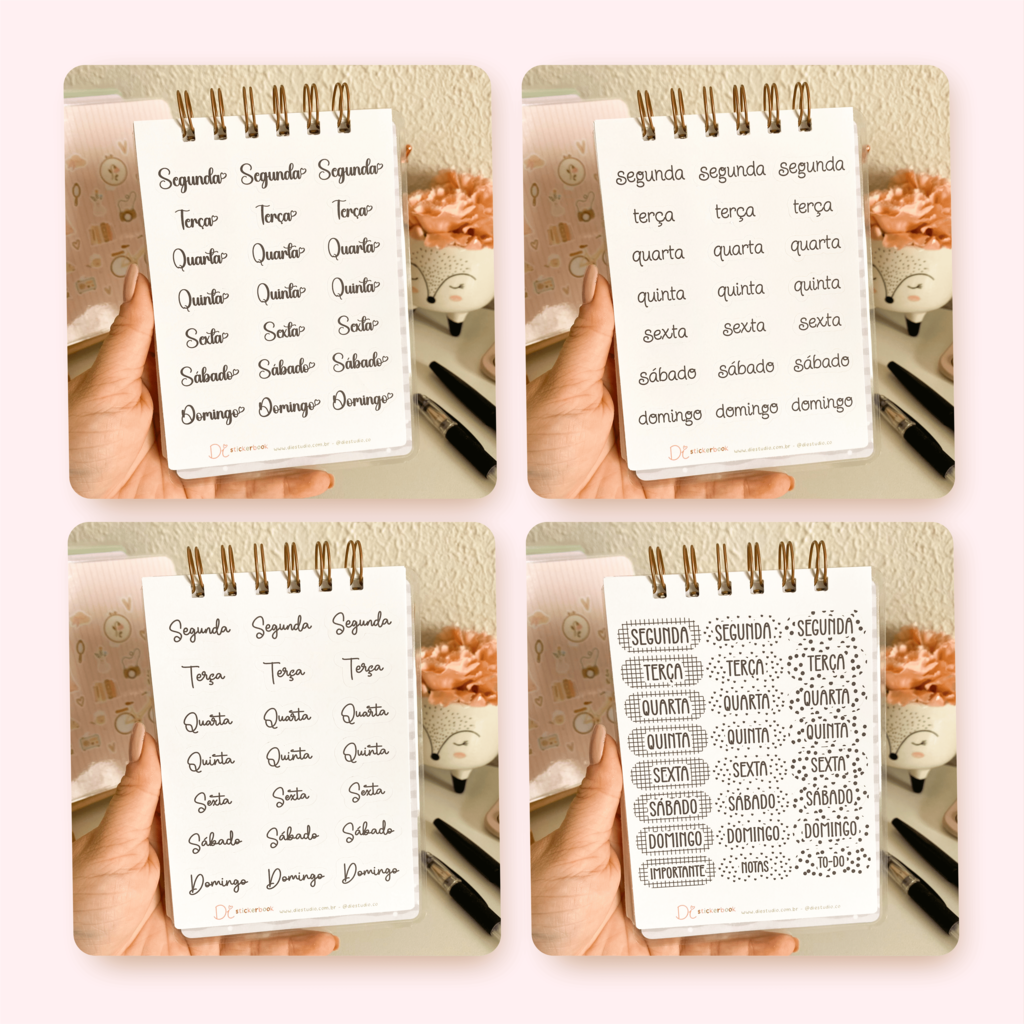 Segunda Segunda Segunda
Terça Terça Terça
Quarta Quarta Quarta
Quinta Quinta Quinta
Sexta Sexta Sexta
Sábado Sábado Sábado
Domingo Domingo Domingo
DE stickerbook www.diestudio.com.br - @diestudio.cc
segunda segunda segunda
terça terça terça
quarta quarta quarta
quinta quinta quinta
sexta sexta sexta
sábado sábado sábado
domingo domingo domingo
DE stickerbook www.diestudio.com.br - @diestudio.cc
Segunda Segunda Segunda
Terça Terça Terça
Quarta Quarta Quarta
Quinta Quinta Quinta
Sexta Sexta Sexta
Sábado Sábado Sábado
Domingo Domingo Domingo
DE stickerbook www.diestudio.com.br - @diestudio.cc
SEGUNDA SEGUNDA SEGUNDA
TERÇA TERÇA TERÇA
QUARTA QUARTA QUARTA
QUINTA QUINTA QUINTA
SEXTA SEXTA SEXTA
SÁBADO SÁBADO SÁBADO
DOMINGO DOMINGO DOMINGO
IMPORTANTE NOTAS TO-DO
DE stickerbook www.diestudio.com.br - @diestudio.cc